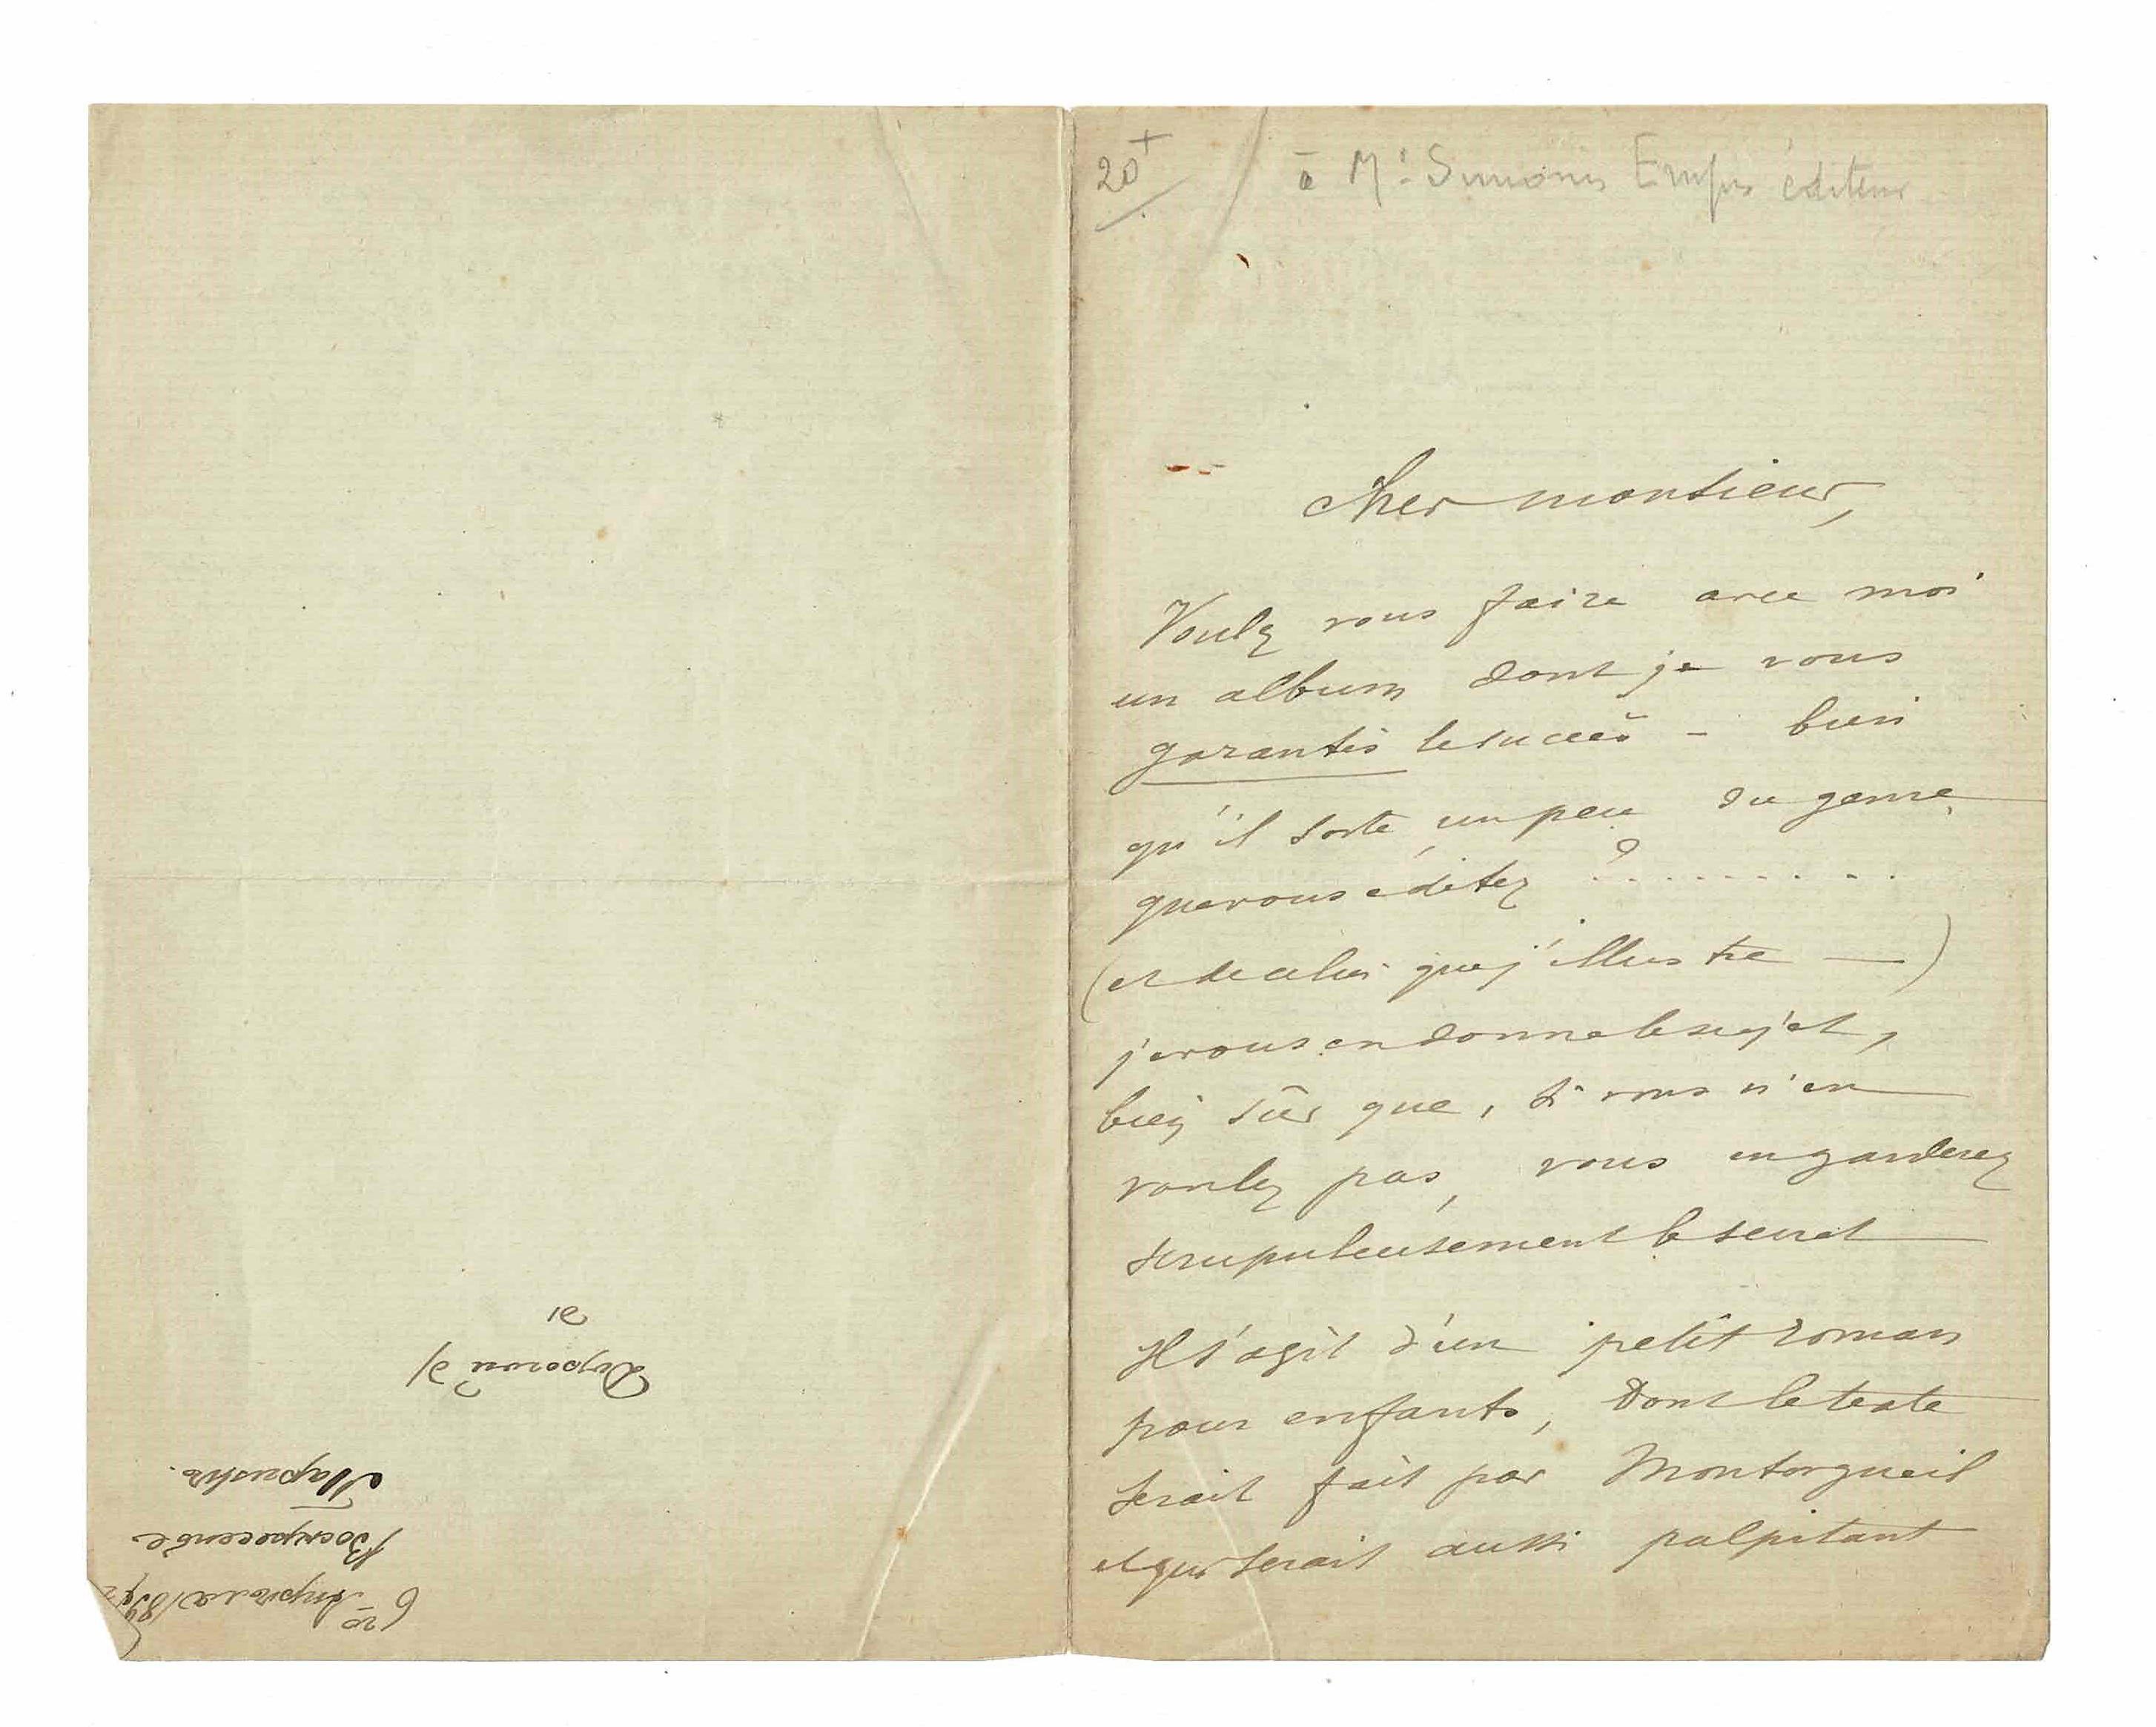 6го Апреля
Воскресенье
Парижъ.
Дорогой
20+
à Mr Simonis Empis éditeur
cher monsieur,
Voulez vous faire avec moi
un album dont je vous
garantis le succès - bien
qu'il sorte un peu du genre
que vous éditez ? . . . . . . . . .
(et de celui que j'illustre —)
je vous en donne le sujet,
bien sûr que, si vous n'en
voulez pas, vous en garderez
scrupuleusement le secret
Il s'agit d'un petit roman
pour enfants, dont le texte
serait fait par Montorgueil
et qui serait aussi palpitant